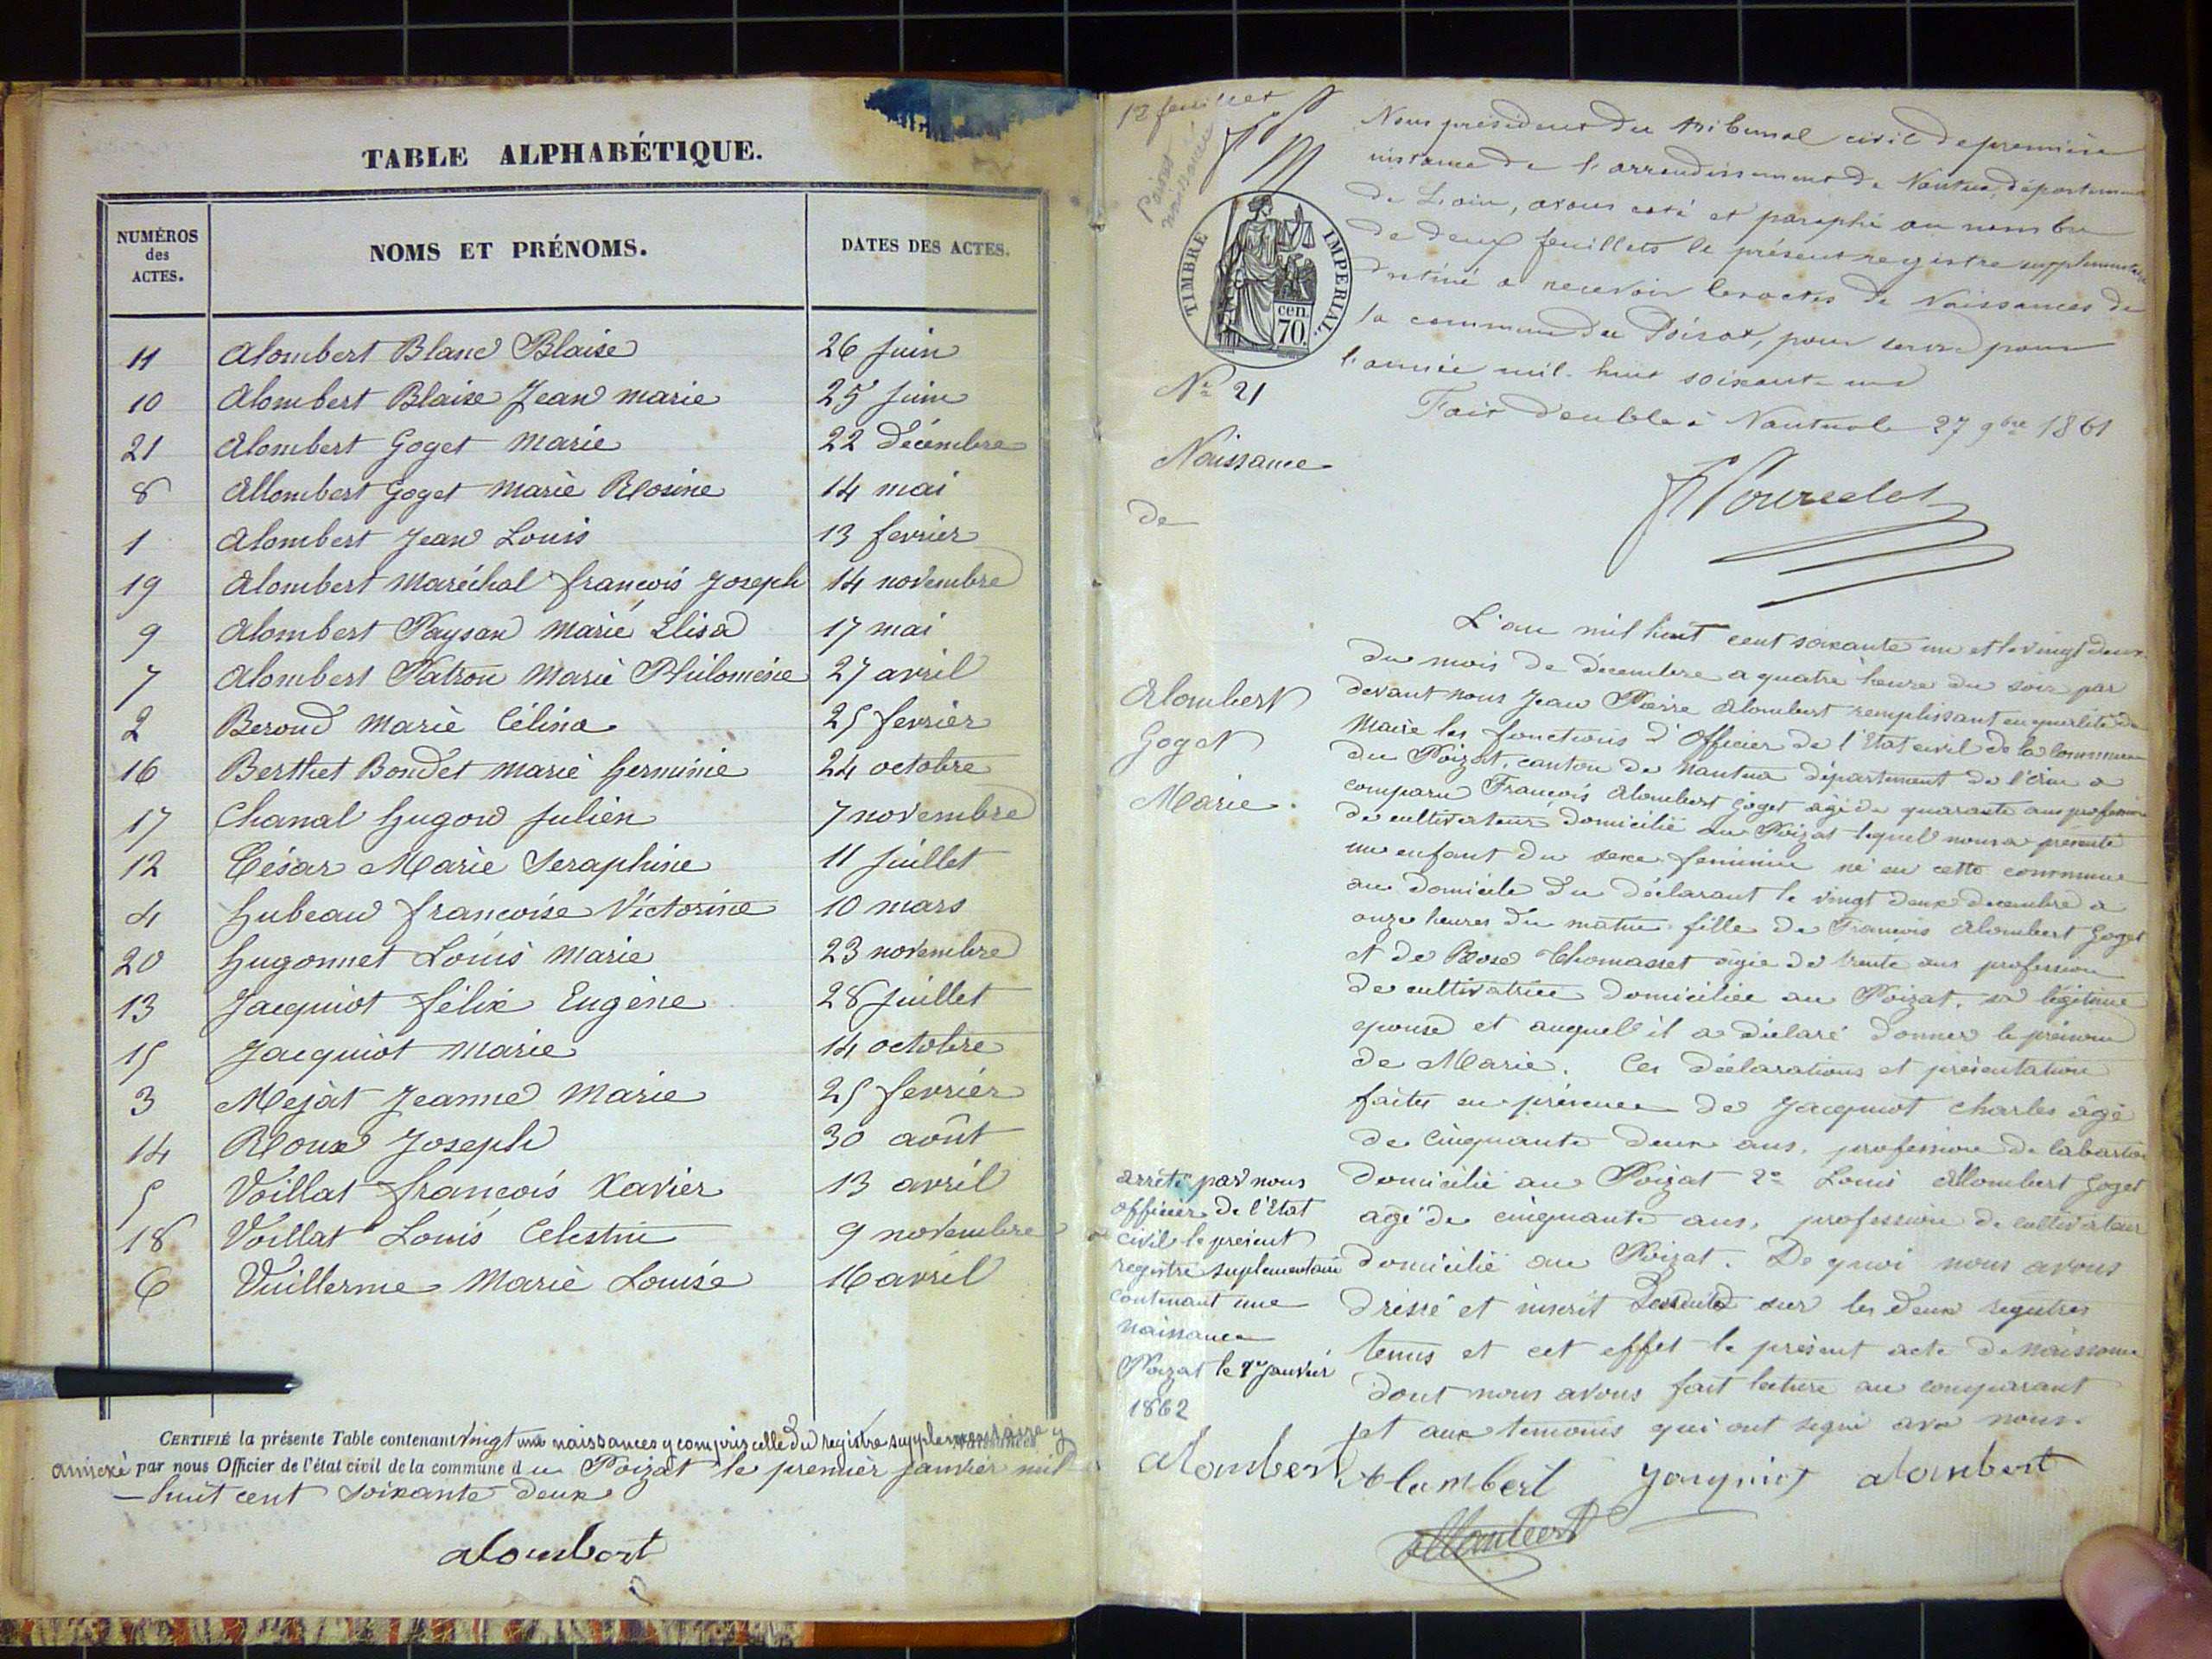 TABLE ALPHABÉTIQUE.
NUMÉROS des ACTES.
NOMS ET PRÉNOMS.
DATES DES ACTES.
11 Alombert Blanc Blaise 26 juin
10 Alombert Blaise Jean marie 25 juin
21 Alombert Goget Marie 22 décembre
8 Allombert Goget Marie Rosine 14 mai
1 Alombert Jean Louis 13 fevrier
19 Alombert Maréchal françois Joseph 14 novembre
9 Alombert Paysan Marie Elisa 17 mai
7 Alombert Patron Marie Philomène 27 avril
2 Beroud Marie Célina 25 fevrier
16 Berthet Bondet Marie herminie 24 octobre
17 Chanal hugon julien 7 novembre
12 César Marie Seraphine 11 juillet
4 hubeau françoise Victorine 10 mars
20 hugonnet Louis Marie 23 novembre
13 Jacquiot félix Eugène 28 juillet
15 Jacquiot Marie 14 octobre
3 Mejat Jeanne Marie 25 fevrier
14 Roux Joseph 30 août
5 Voillat françois Xavier 13 avril
18 Voillat Louis Celestin 9 novembre
6 Vuillerme Marie Louise 16 avril
CERTIFIÉ la présente Table contenant vingt une naissances y compris celle du registre supplementaire y
annexé par nous Officier de l'état civil de la commune du Poizat le premier janvier mil
huit cent soixante deux
alombert
1er feuillet
TIMBRE IMPERIAL.
70. cen.
Nous président du tribunal civil de première
instance de l'arrondissement de Nantua, département
de L'ain, avons coté et paraphé au nombre
de deux feuillets le présent registre supplémentaire
destiné a recevoir les actes de Naissances de
la commune du Poizat, pour servir pour
l'année mil huit soixante une
Fait double à Nantua le 27 9bre 1861
No 21
Naissance
de
Alombert
Goget
Marie.
L'an mil huit cent soixante un et le vingt deux
du mois de decembre a quatre heure du soir par
devant nous Jean Pierre Alombert remplissant en qualité de
Maire les fonctions d'Officier de l'Etat civil de la Commune
du Poizat, canton de Nantua département de l'ain a
comparu François Alombert Goget âgé de quarante ans profession
de cultivateur domicilié au Poizat lequel nous a présenté
un enfant du sexe feminin né en cette commune
au domicile du déclarant le vingt deux decembre a
onze heures du matin fille de François Alombert Goget
et de Rose Thomasset âgée de trente ans profession
de cultivatrice domiciliée au Poizat, sa légitime
epouse et auquel il a déclaré donner le prénom
de Marie. Ces déclarations et présentation
faites en présence de Jacquiot Charles âgé
de cinquante deux ans, profession de
domicilié au Poizat 2o Louis Allombert Goget
agé de cinquante ans, profession de cultivateur
domicilié au Poizat. De quoi nous avons
dressé et inscrit sur les deux registres
tenus et cet effet le présent acte de naissance
dont nous avons fait lecture au comparant
et aux temoins qui ont signé avec nous.
arrêté par nous
officier de l'Etat
civil le present
registre suplementaire
contenant une
naissance
Poizat le 1er janvier
1862
alombert Alombert Jacquiot alombert
Allombert